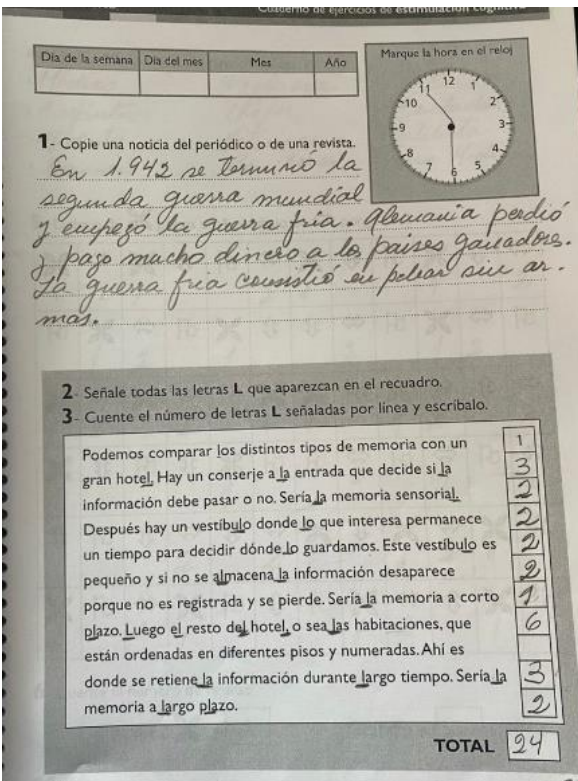 Cuaderno de ejercicios de estimulación
Día de la semana Día del mes Mes Año
Marque la hora en el reloj
12
11 1
10 2
9 3
8 4
7 5
6
1- Copie una noticia del periódico o de una revista.
En 1.942 se terminó la
segunda guerra mundial
y empezó la guerra fría. Alemania perdió
y pago mucho dinero a los paises ganadores.
La guerra fria consistió en pelear sin ar-
mas.
2- Señale todas las letras L que aparezcan en el recuadro.
3- Cuente el número de letras L señaladas por línea y escríbalo.
Podemos comparar los distintos tipos de memoria con un 1
gran hotel. Hay un conserje a la entrada que decide si la 3
información debe pasar o no. Sería la memoria sensorial. 2
Después hay un vestíbulo donde lo que interesa permanece 2
un tiempo para decidir dónde lo guardamos. Este vestíbulo es 2
pequeño y si no se almacena la información desaparece 2
porque no es registrada y se pierde. Sería la memoria a corto 1
plazo. Luego el resto del hotel, o sea las habitaciones, que 6
están ordenadas en diferentes pisos y numeradas. Ahí es
donde se retiene la información durante largo tiempo. Sería la 3
memoria a largo plazo. 2
TOTAL 24